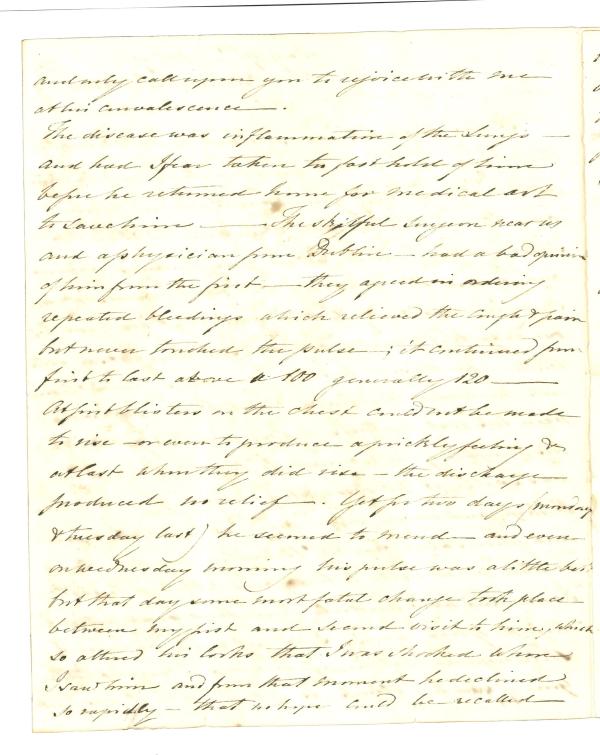 and only call upon you to rejoice with me
at his convalescence —.
The disease was inflammation of the Lungs —
and had I fear taken too fast hold of him
before he returned home for medical art
to save him — The skilful Surgeon near us
and a physician from Dublin — had a bad opinion
of him from the first — they agreed in ordering
repeated bleedings which relieved the cough & pain
but never touched the pulse —; it continued from
first to last above 100 generally 120 —
At first blisters on the chest could not be made
to rise — or even to produce a prickly feeling &
at last when they did rise — the discharge
produced no relief. Yet for two days (monday
& tuesday last) he seemed to mend — and even
on wednesday morning his pulse was a little bet
but that day some most fatal change took place
between my first and second visit to him, which
so altered his looks that I was shocked when
I saw him and from that moment he declined
so rapidly — that no hope could be recalled